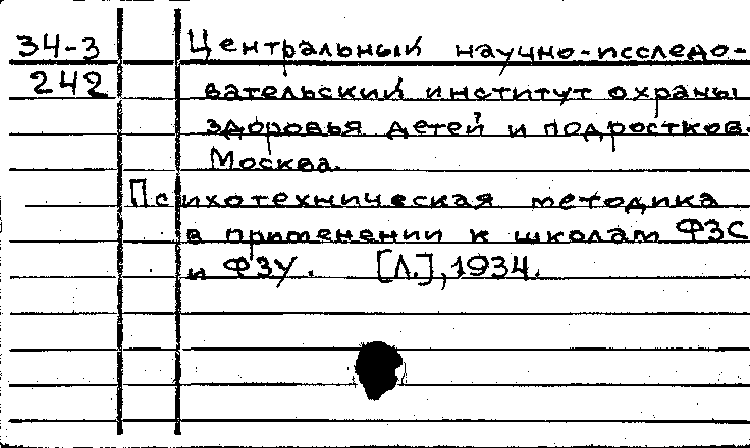 34-3 Центральный научно-исследо-
242 вательский институт охраны
здоровья детей и подростков.
Москва.
Психотехническая методика
в применении к школам ФЗС
и ФЗУ. [Л.], 1934.